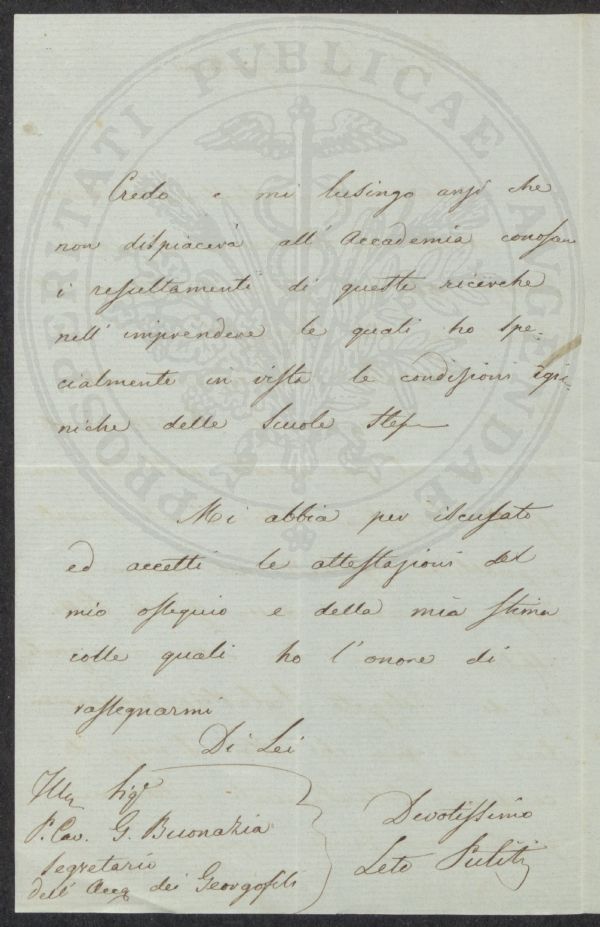 PROSPERITATI PVBLICAE AVGENDAE
Credo e mi lusingo anzi che
non dispiacerà all' Accademia
i resultamenti di queste ricerche
nell' imprendere le quali ho spe-
cialmente in vista le condizioni igie-
niche delle Scuole stesse
Mi abbia per iscusato
ed accetti le attestazioni del
mio ossequio e della mia stima
colle quali ho l'onore di
rassegnarmi
Di Lei
Illm Sigr
P. Cav. G. Buonazia
Segretario
dell' Accq dei Georgofili
Devotissimo
Leto Puliti